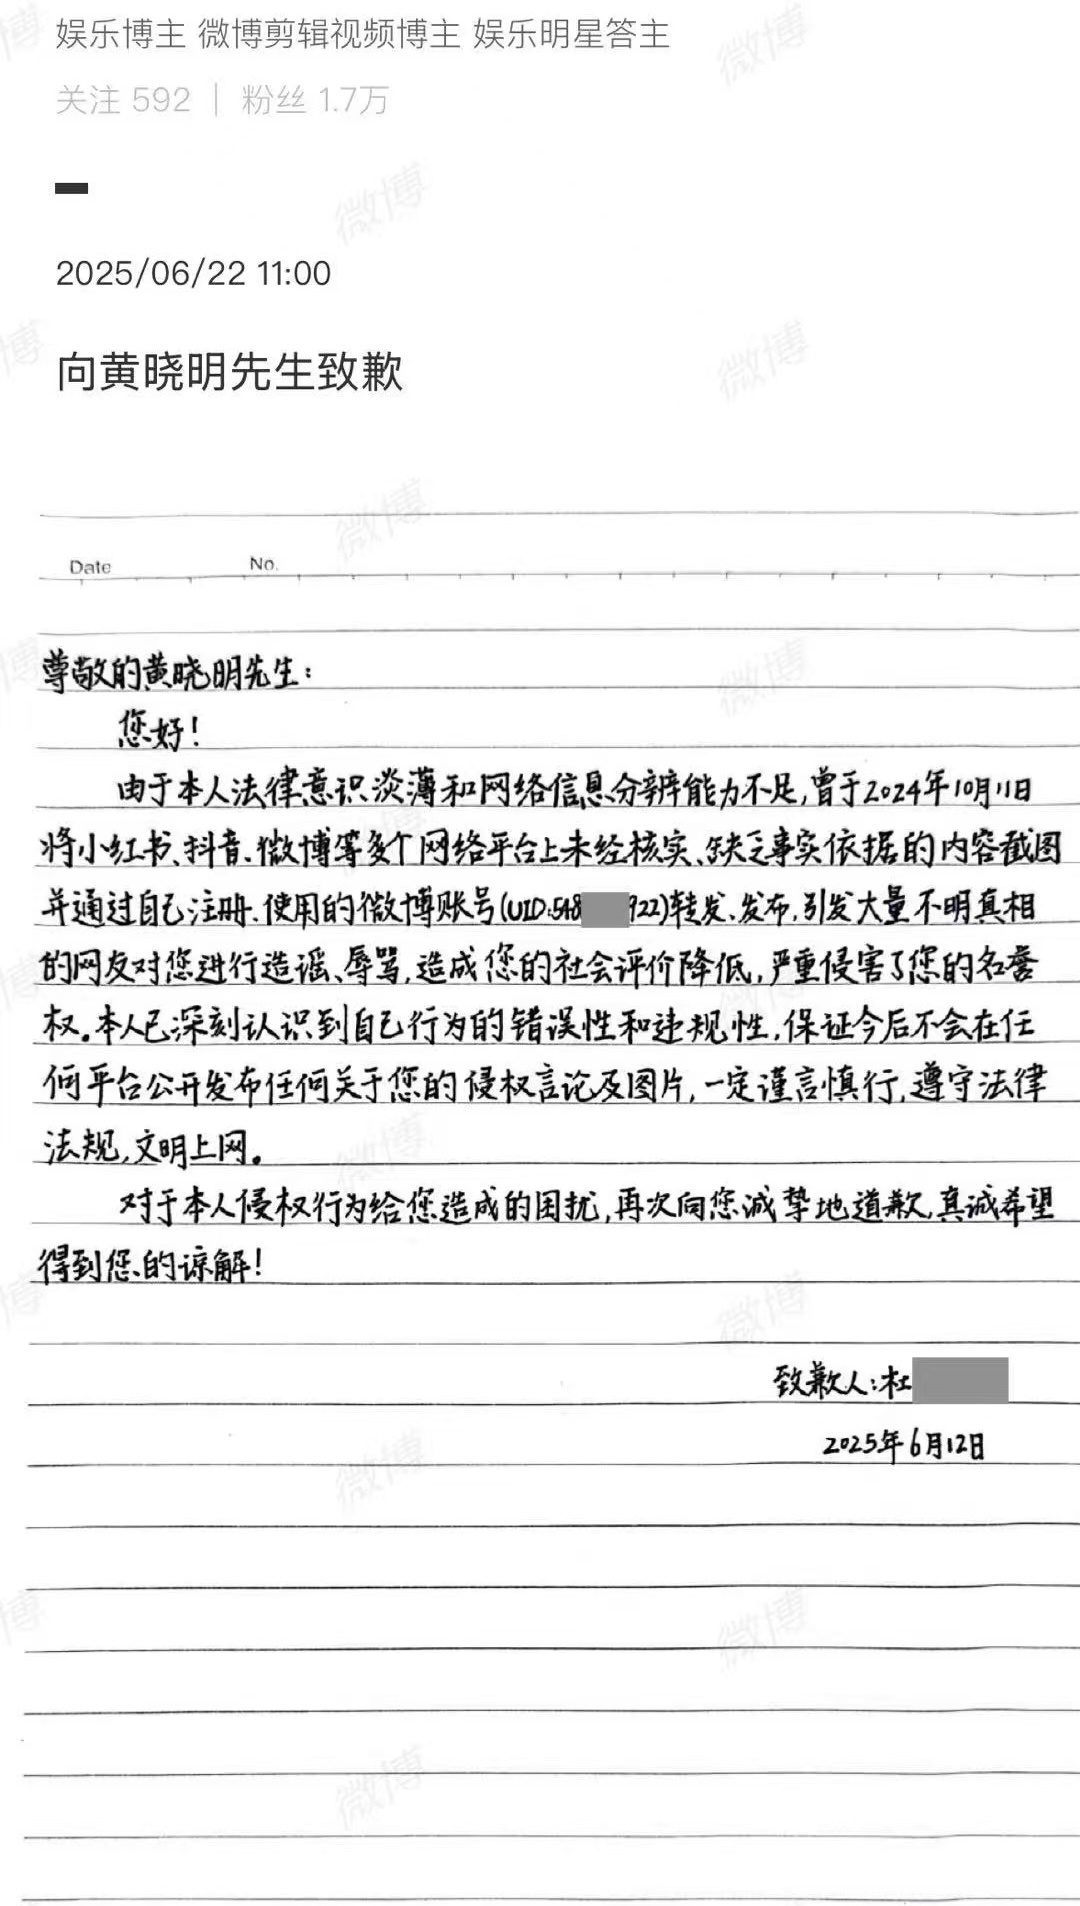 娱乐博主 微博剪辑视频博主 娱乐明星答主
关注 592 | 粉丝 1.7万
2025/06/22 11:00
向黄晓明先生致歉
Date No.
尊敬的黄晓明先生：
您好！
由于本人法律意识淡薄和网络信息分辨能力不足，曾于2024年10月11日
将小红书、抖音、微博等多个网络平台上未经核实、缺乏事实依据的内容截图
并通过自己注册、使用的微博账号(UID:548 922)转发、发布，引发大量不明真相
的网友对您进行造谣、辱骂，造成您的社会评价降低，严重侵害了您的名誉
权。本人已深刻认识到自己行为的错误性和违规性，保证今后不会在任
何平台公开发布任何关于您的侵权言论及图片，一定谨言慎行，遵守法律
法规，文明上网。
对于本人侵权行为给您造成的困扰，再次向您诚挚地道歉，真诚希望
得到您的谅解！
致歉人：杜
2025年6月12日
微博